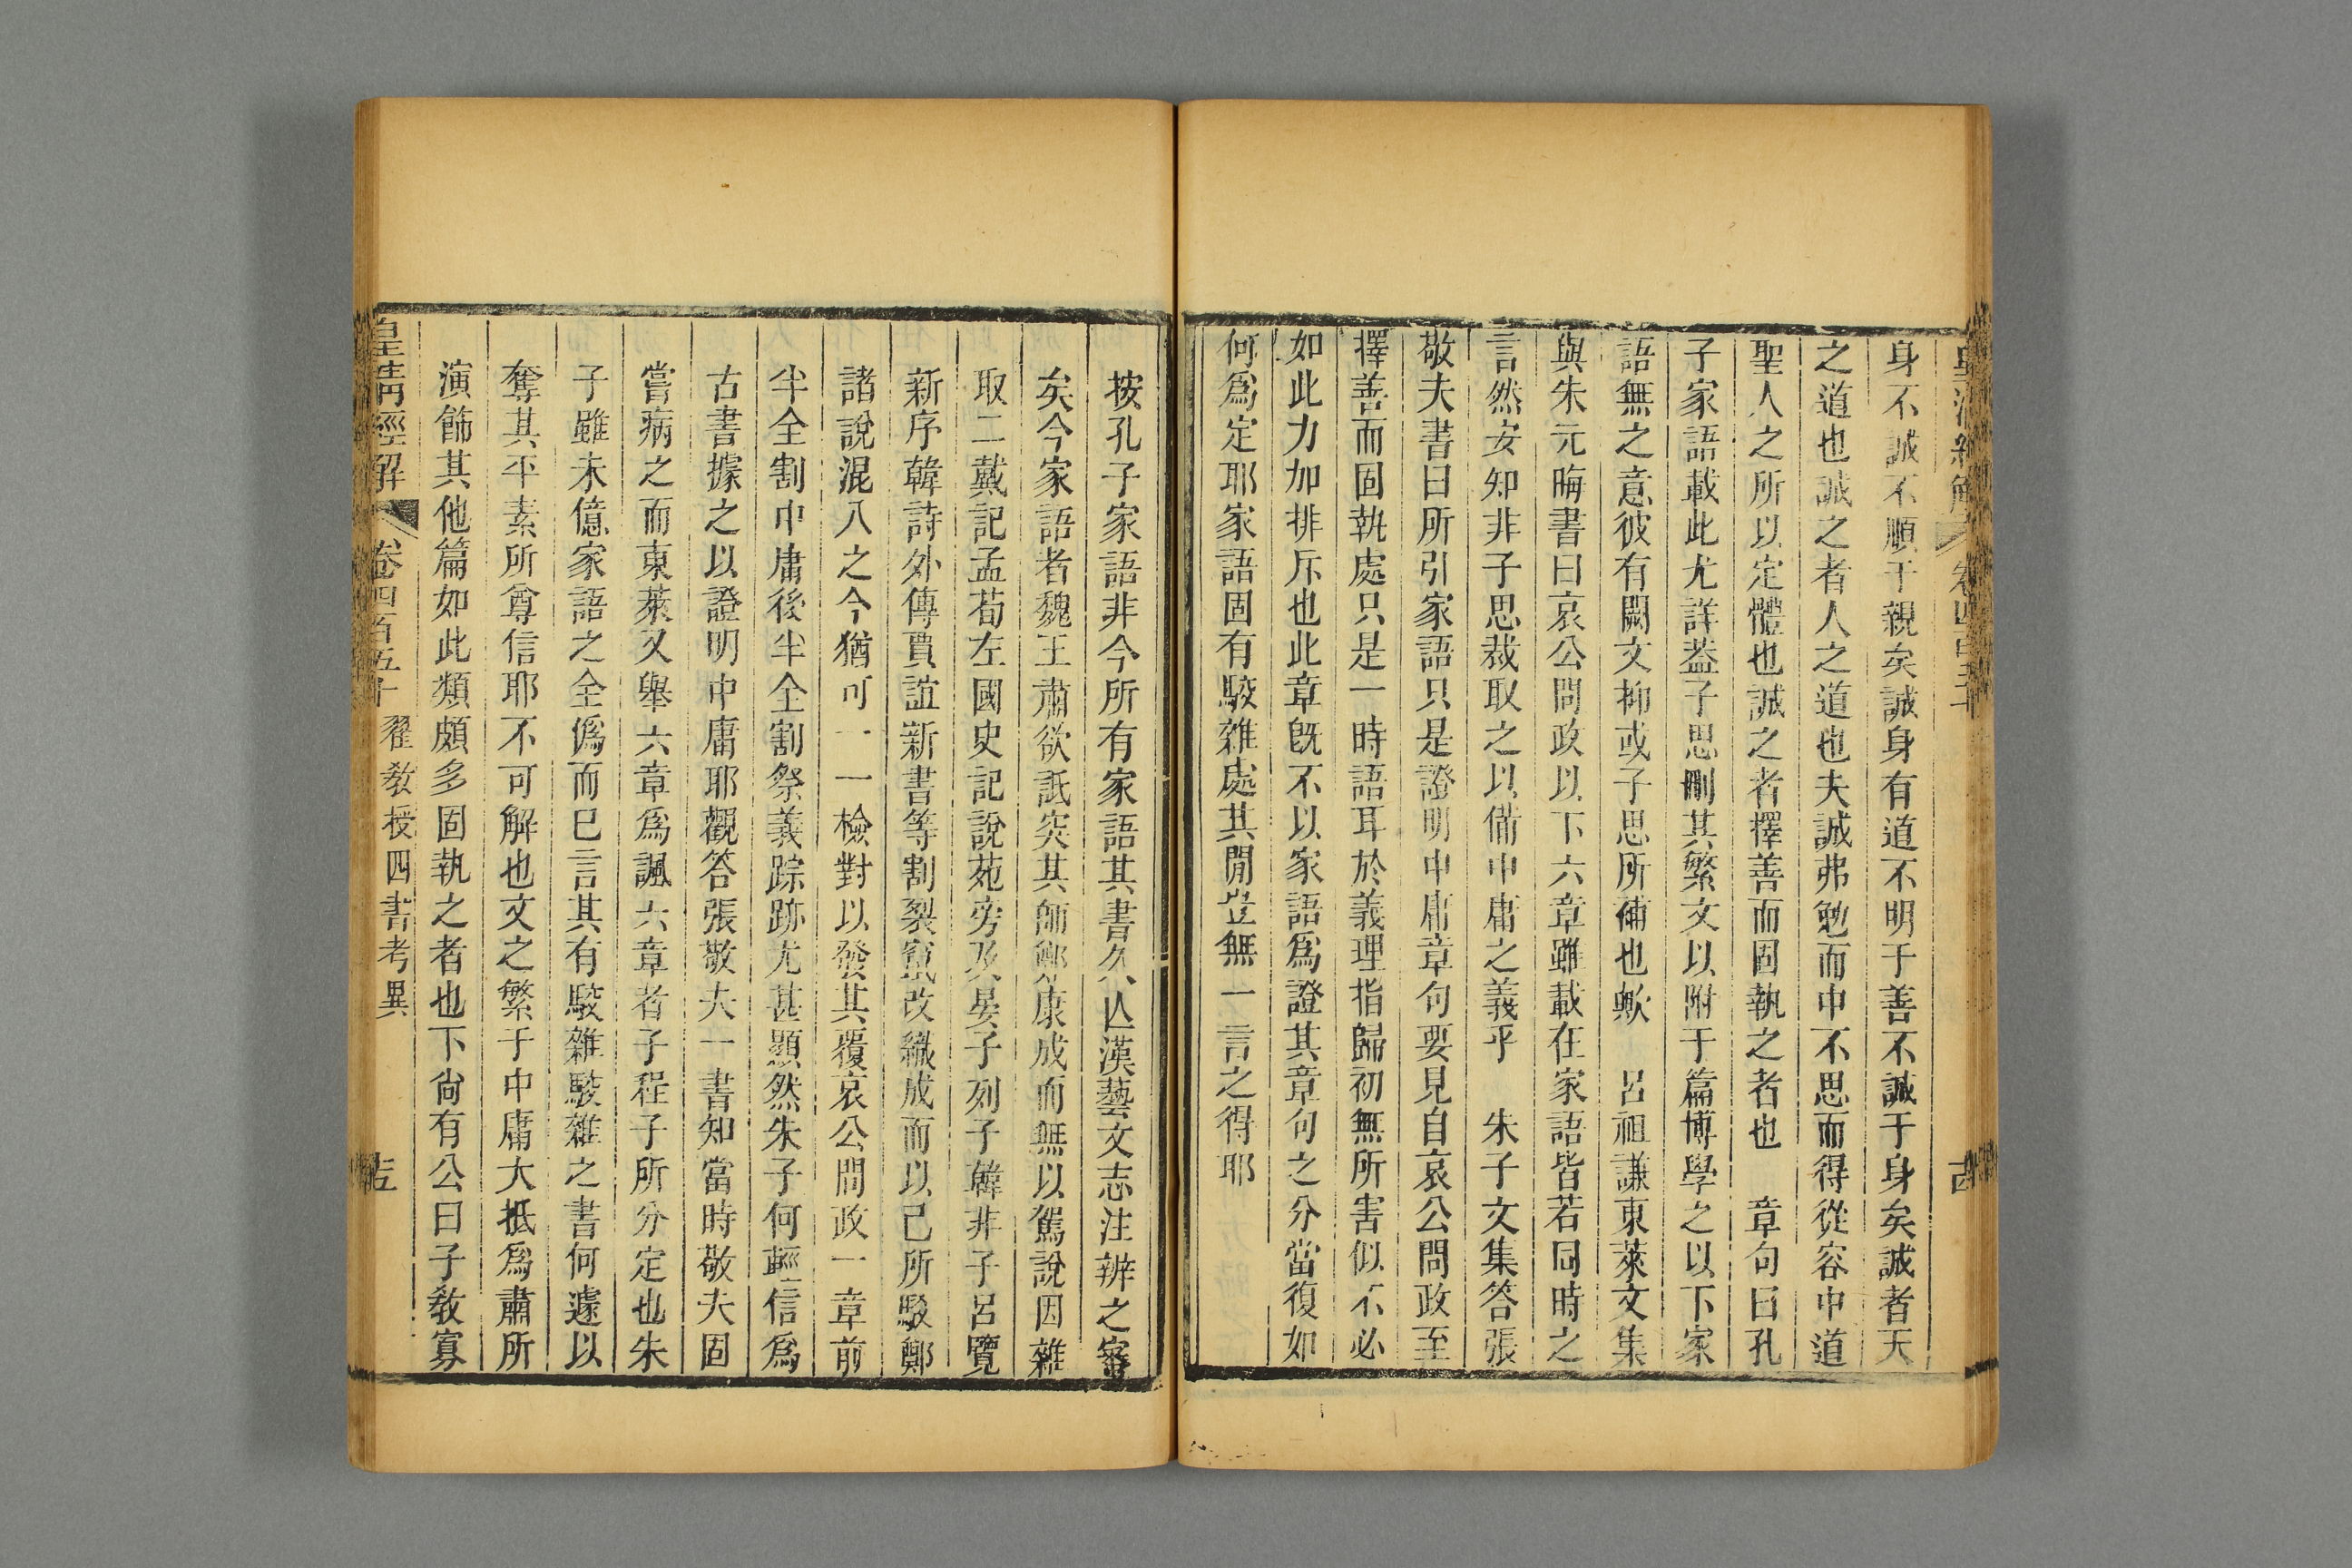 身不誠不順于親矣誠身有道不明于善不誠于身矣誠者天
之道也誠之者人之道也夫誠弗勉而中不思而得從容中道
聖人之所以定體也誠之者擇善而固執之者也 章句曰孔
子家語載此尤詳葢子思刪其繁文以附于篇博學之以下家
語無之意彼有闕文抑或子思所補也歟 呂祖謙東萊文集
與朱元晦書曰哀公問政以下六章雖載在家語皆若同時之
言然安知非子思裁取之以備中庸之義乎 朱子文集答張
敬夫書曰所引家語只是證明中庸章句要見自哀公問政至
擇善而固執處只是一時語耳於義理指歸初無所害似不必
如此力加排斥也此章旣不以家語爲證其章句之分當復如
何爲定耶家語固有駮雜處其閒豈無一言之得耶
按孔子家語非今所有家語其書久亾漢藝文志注辨之審
矣今家語者魏王肅欲詆突其師鄭康成而無以駕說因雜
取二戴記孟荀左國史記說苑旁及晏子列子韓非子呂覽
新序韓詩外傳賈誼新書等割裂竄改織成而以己所駁鄭
諸說混入之今猶可一一檢對以發其覆哀公問政一章前
半全割中庸後半全割祭義踪跡尤甚顯然朱子何輕信爲
古書據之以證明中庸耶觀答張敬夫一書知當時敬夫固
嘗病之而東萊又舉六章爲諷六章者子程子所分定也朱
子雖未億家語之全僞而巳言其有駮雜駮雜之書何遽以
奪其平素所尊信耶不可解也文之繁于中庸大抵爲肅所
演飾其他篇如此類頗多固執之者也下尙有公曰子敎寡
皇淸經解 卷四百五十 翟敎授四書考異 圭